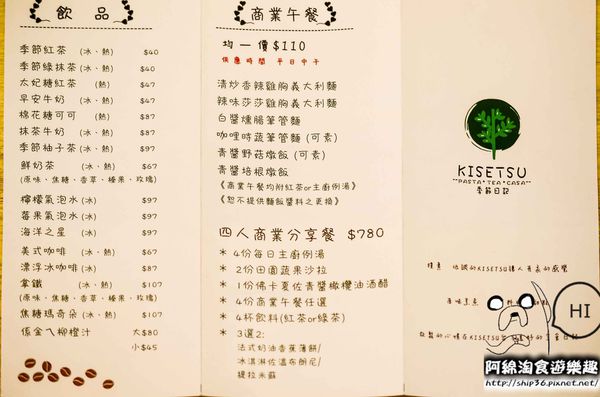 飲 品
季節紅茶 (冰、熱) $40
季節綠抹茶 (冰、熱) $40
太妃糖紅茶 (熱) $47
早安牛奶 (冰、熱) $47
棉花糖可可 (熱) $87
抹茶牛奶 (冰、熱) $87
季節柚子茶 (冰、熱) $97
鮮奶茶 (冰、熱) $67
(原味、焦糖、香草、榛果、玫瑰)
檸檬氣泡水 (冰) $97
莓果氣泡水 (冰) $97
海洋之星 (冰) $97
美式咖啡 (冰、熱) $67
漂浮冰咖啡 (冰) $87
拿鐵 (冰、熱) $107
(原味、焦糖、香草、榛果、玫瑰)
焦糖瑪奇朵 (冰、熱) $107
係金ㄟ柳橙汁 大$80
小$45
商業午餐
均一價$110
供應時間 平日中午
清炒香辣雞胸義大利麵
辣味莎莎雞胸義大利麵
白醬燻腸筆管麵
咖哩時蔬筆管麵 (可素)
青醬野菇燉飯 (可素)
青醬培根燉飯
《商業午餐均附紅茶or主廚例湯》
《恕不提供麵飯醬料之更換》
四人商業分享餐 $780
* 4份每日主廚例湯
* 2份田園蔬果沙拉
* 1份佛卡夏佐青醬橄欖油酒醋
* 4份商業午餐任選
* 4杯飲料(紅茶or綠茶)
* 3選2:
法式奶油香蕉薄餅/
冰淇淋佐溫布朗尼/
提拉米蘇
KISETSU
PASTA*TEA*CASA
季節日記
HI
阿綿淘食遊樂趣
http://ship36.pixnet.net/